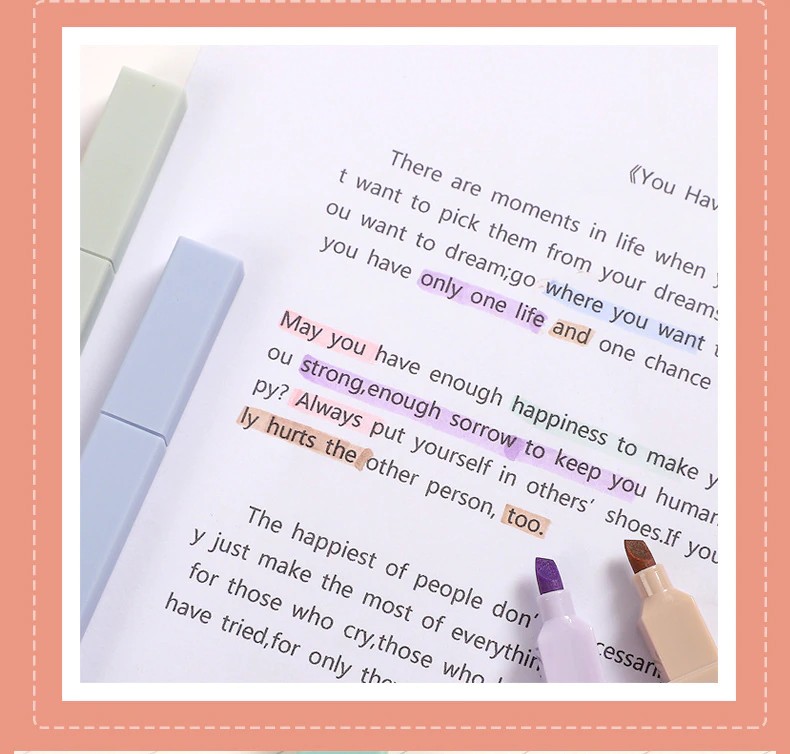 《You Hav
There are moments in life when
t want to pick them from your dreams
ou want to dream;go where you want t
you have only one life and one chance
May you have enough happiness to make y
ou strong,enough sorrow to keep you human
py? Always put yourself in others' shoes.If you
ly hurts the other person, too.
The happiest of people don'
y just make the most of everythin
for those who cry,those who
have tried,for only the
cessari